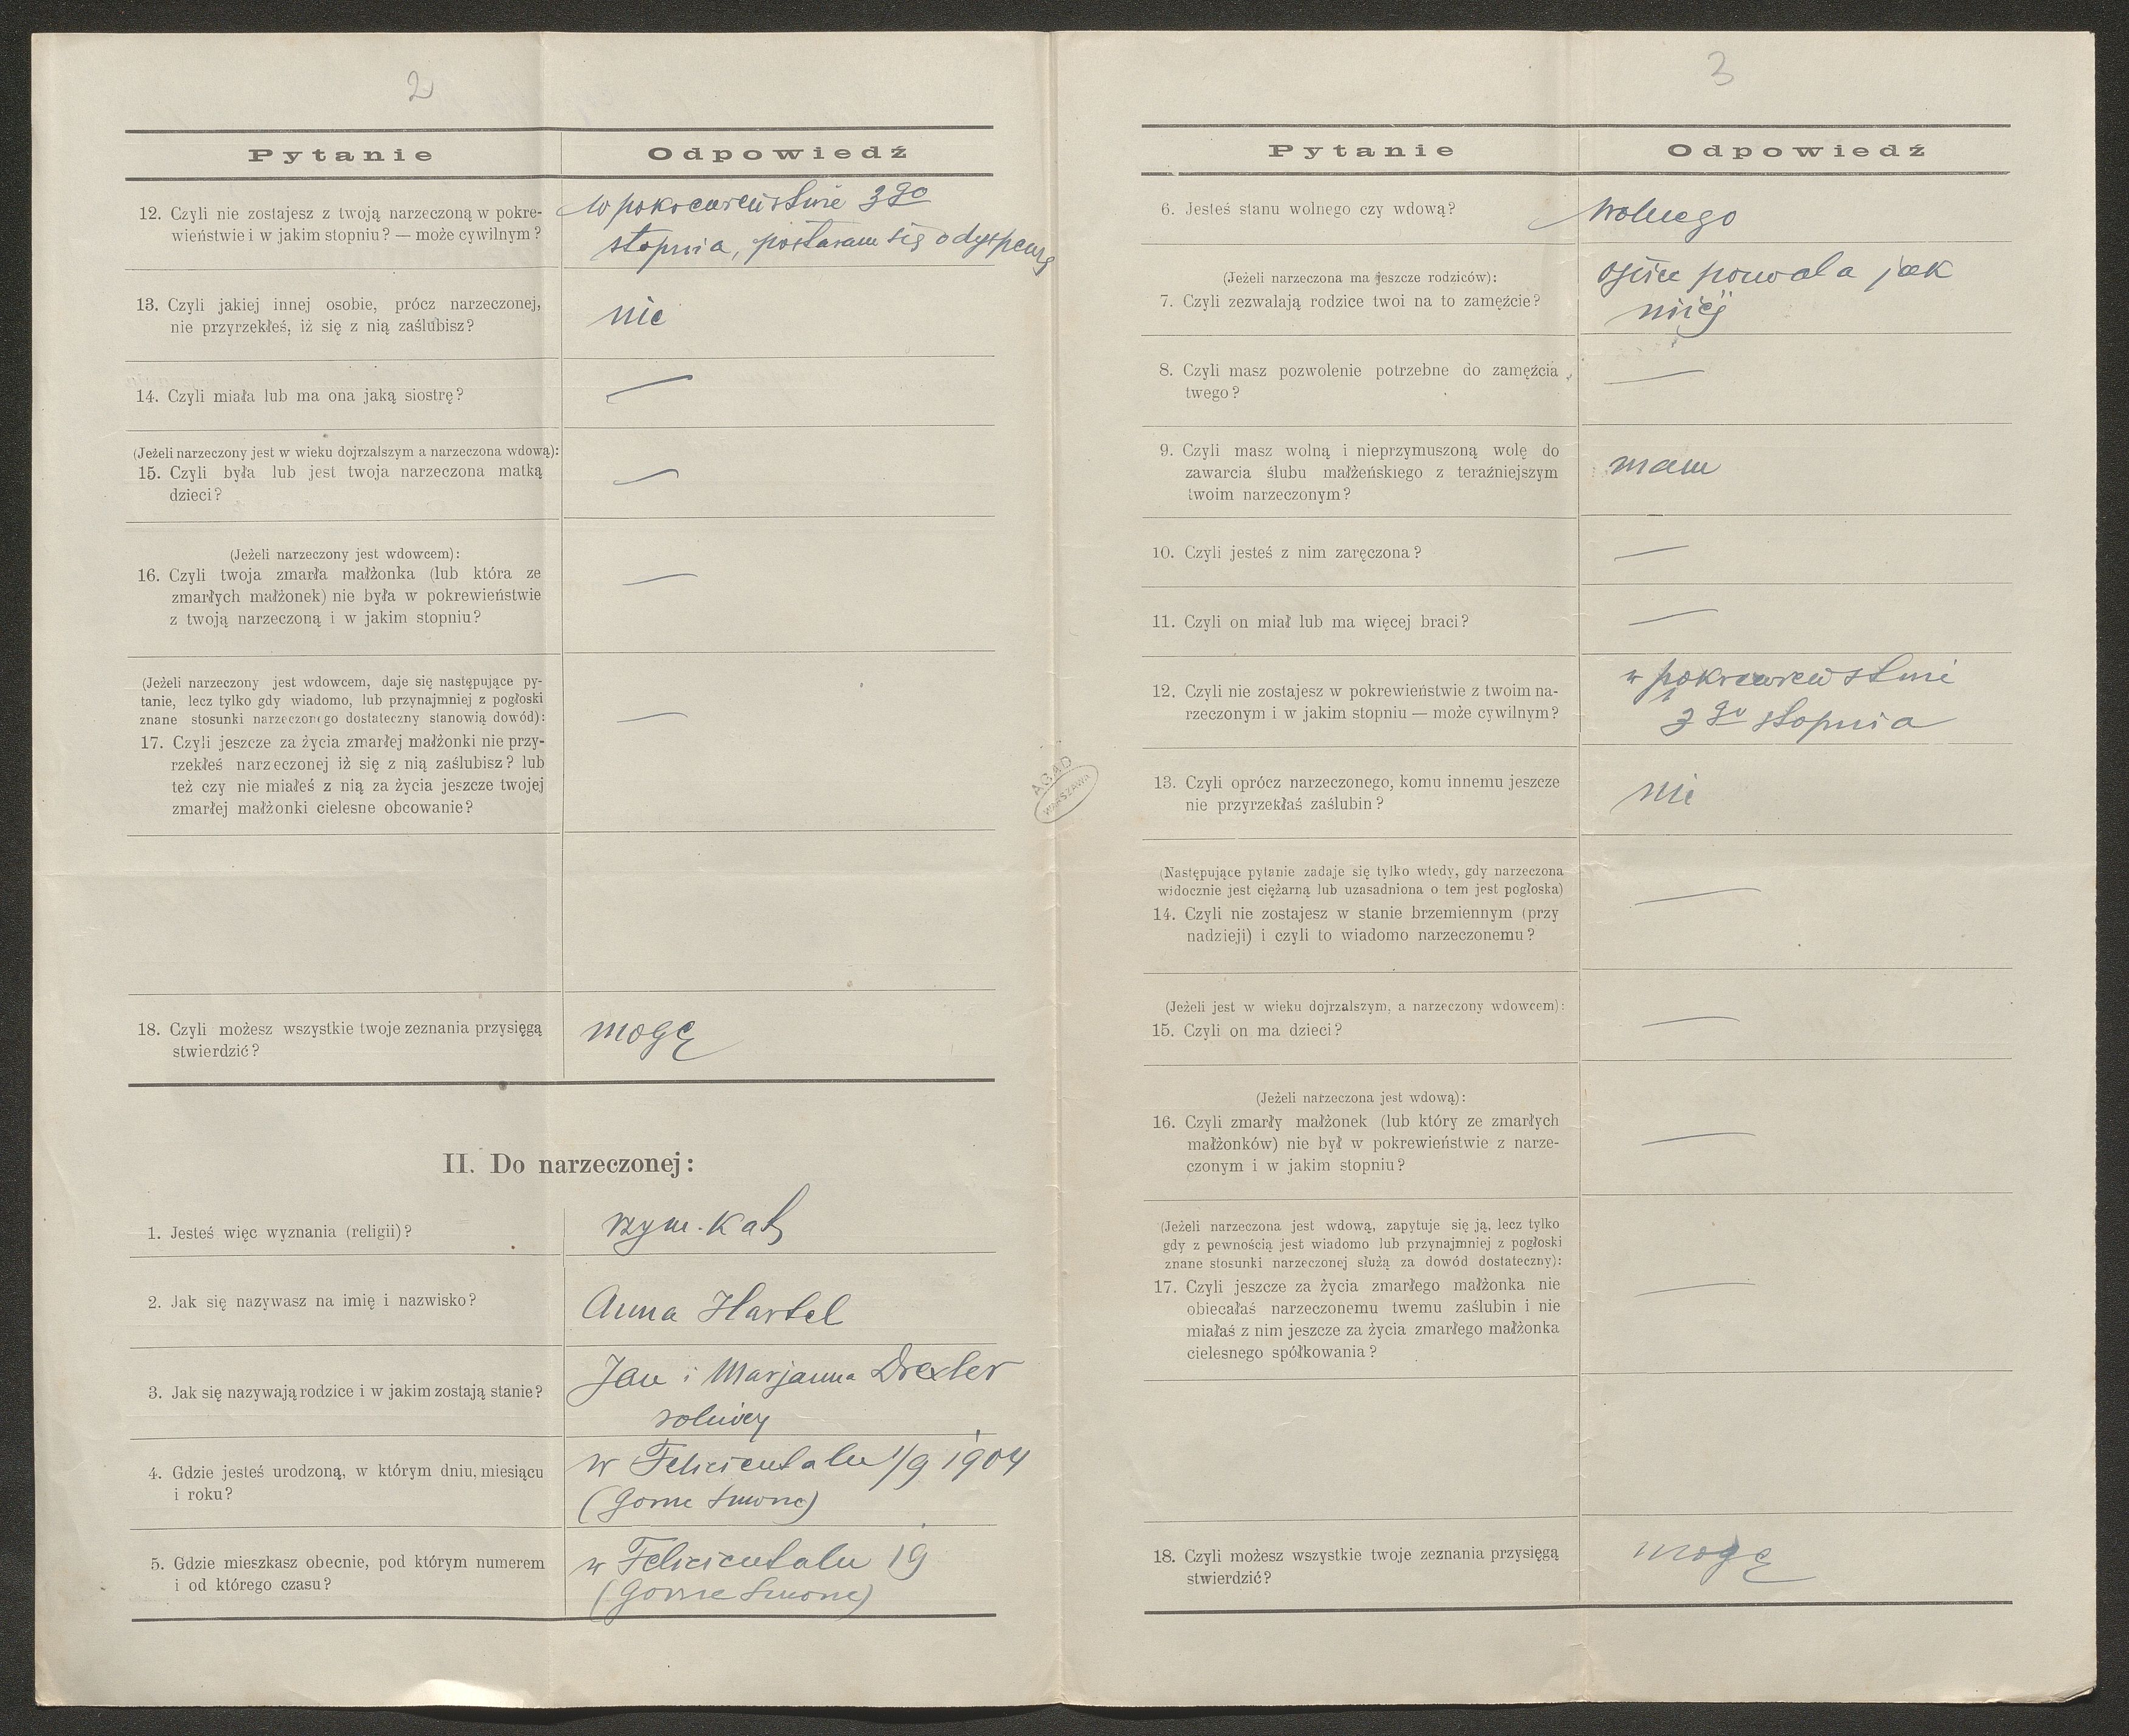 2
Pytanie Odpowiedź
12. Czyli nie zostajesz z twoją narzeczoną w pokre-
wieństwie i w jakim stopniu? — może cywilnym?
w pokrewieństwie 3go
stopnia, postaram się o dyspensę
13. Czyli jakiej innej osobie, prócz narzeczonej,
nie przyrzekłeś, iż się z nią zaślubisz?
nie
14. Czyli miała lub ma ona jaką siostrę?
—
(Jeżeli narzeczony jest w wieku dojrzalszym a narzeczona wdową):
15. Czyli była lub jest twoja narzeczona matką
dzieci?
—
(Jeżeli narzeczony jest wdowcem):
16. Czyli twoja zmarła małżonka (lub która ze
zmarłych małżonek) nie była w pokrewieństwie
z twoją narzeczoną i w jakim stopniu?
—
(Jeżeli narzeczony jest wdowcem, daje się następujące py-
tanie, lecz tylko gdy wiadomo, lub przynajmniej z pogłoski
znane stosunki narzeczonego dostateczny stanowią dowód):
17. Czyli jeszcze za życia zmarłej małżonki nie przy-
rzekłeś narzeczonej iż się z nią zaślubisz? lub
też czy nie miałeś z nią za życia jeszcze twojej
zmarłej małżonki cielesne obcowanie?
—
18. Czyli możesz wszystkie twoje zeznania przysięgą
stwierdzić?
mogę
II. Do narzeczonej:
1. Jesteś więc wyznania (religii)?
rzym. kat
2. Jak się nazywasz na imię i nazwisko?
Anna Hartel
3. Jak się nazywają rodzice i w jakim zostają stanie?
Jan i Marjanna Drexler
rolnicy
4. Gdzie jesteś urodzoną, w którym dniu, miesiącu
i roku?
w Felicientalu 1/9 1904
(Gorne )
5. Gdzie mieszkasz obecnie, pod którym numerem
i od którego czasu?
w Felicientalu 19
(Gorne )
3
Pytanie Odpowiedź
6. Jesteś stanu wolnego czy wdową?
Wolnego
(Jeżeli narzeczona ma jeszcze rodziców):
7. Czyli zezwalają rodzice twoi na to zamęźcie?
ojciec pozwala jak
niżej
8. Czyli masz pozwolenie potrzebne do zamęźcia
twego?
—
9. Czyli masz wolną i nieprzymuszoną wolę do
zawarcia ślubu małżeńskiego z teraźniejszym
twoim narzeczonym?
mam
10. Czyli jesteś z nim zaręczona?
—
11. Czyli on miał lub ma więcej braci?
—
12. Czyli nie zostajesz w pokrewieństwie z twoim na-
rzeczonym i w jakim stopniu — może cywilnym?
w pokrewieństwie
3go stopnia
AGAD
WARSZAWA
13. Czyli oprócz narzeczonego, komu innemu jeszcze
nie przyrzekłaś zaślubin?
nie
(Następujące pytanie zadaje się tylko wtedy, gdy narzeczona
widocznie jest ciężarną lub uzasadniona o tem jest pogłoska)
14. Czyli nie zostajesz w stanie brzemiennym (przy
nadzieji) i czyli to wiadomo narzeczonemu?
—
(Jeżeli jest w wieku dojrzalszym, a narzeczony wdowcem):
15. Czyli on ma dzieci?
—
(Jeżeli narzeczona jest wdową):
16. Czyli zmarły małżonek (lub który ze zmarłych
małżonków) nie był w pokrewieństwie z narze-
czonym i w jakim stopniu?
—
(Jeżeli narzeczona jest wdową, zapytuje się ją, lecz tylko
gdy z pewnością jest wiadomo lub przynajmniej z pogłoski
znane stosunki narzeczonej służą za dowód dostateczny):
17. Czyli jeszcze za życia zmarłego małżonka nie
obiecałaś narzeczonemu twemu zaślubin i nie
miałaś z nim jeszcze za życia zmarłego małżonka
cielesnego spółkowania?
—
18. Czyli możesz wszystkie twoje zeznania przysięgą
stwierdzić?
mogę